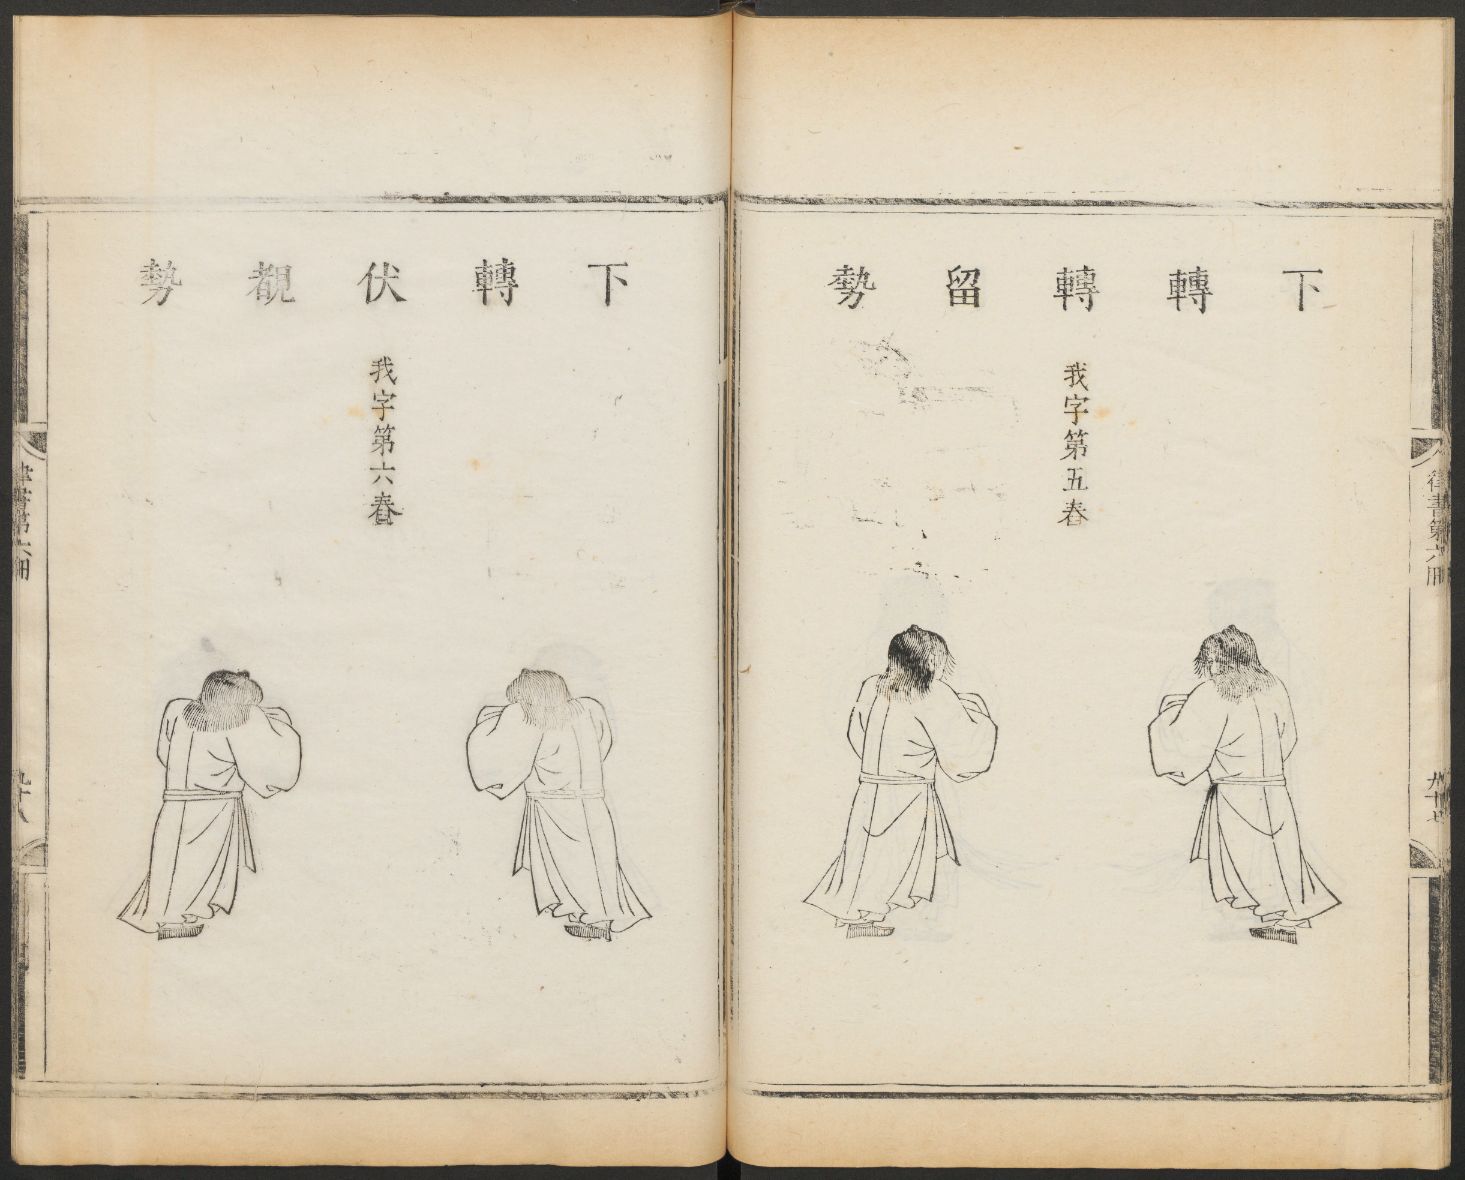 下轉轉留勢
我字第五春
律書第六冊
九十七
下轉伏覩勢
我字第六春
律書第六冊
九十八